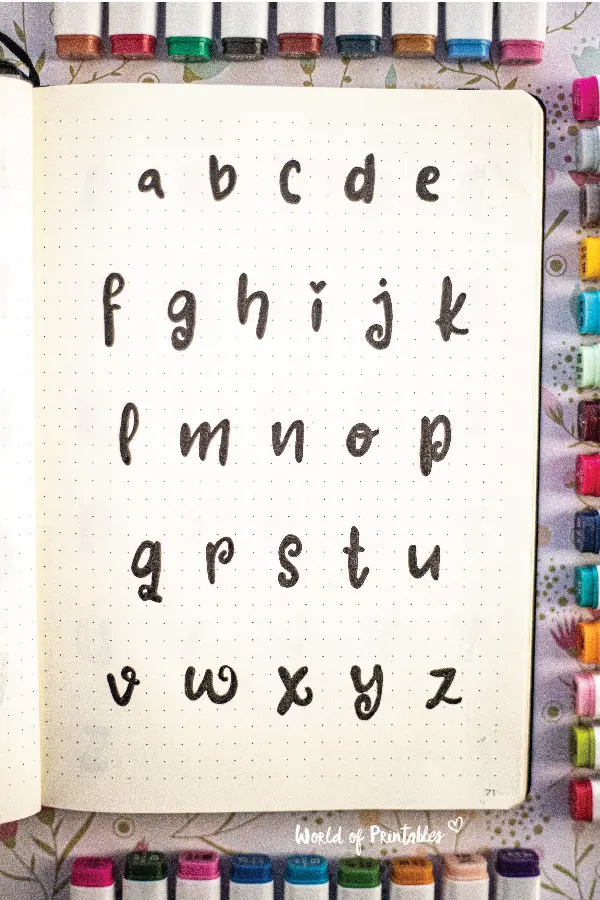 a b c d e
f g h i j k
l m n o p
q r s t u
v w x y z
71
World of Printables